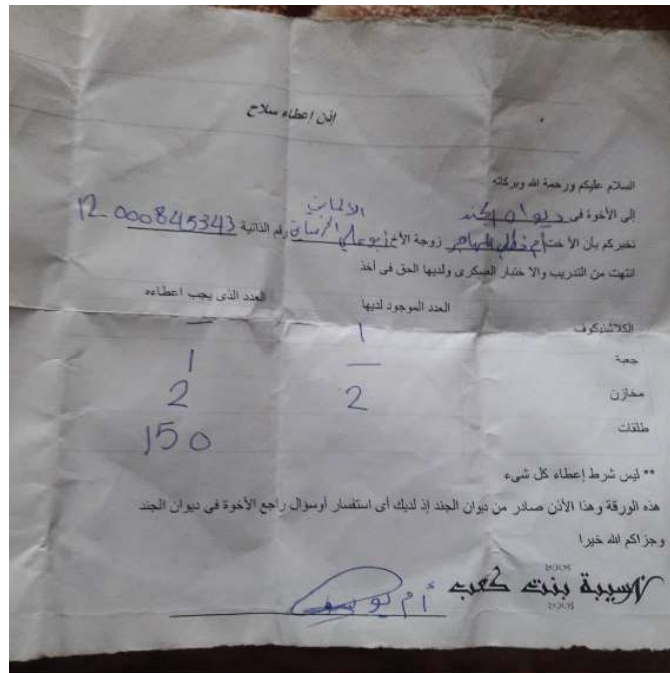 إذن إعطاء سلاح
السلام عليكم ورحمة الله وبركاته
إلى الأخوة فى ديوان الجند
نخبركم بأن الأخت أم المهاجر زوجة الأخ أبو علي الألماني رقم الذاتية 12000845343
انتهت من التدريب والاختبار العسكرى ولديها الحق فى أخذ
العدد الموجود لديها العدد الذى يجب اعطاءه
الكلاشنيكوف 1 —
جعبة — 1
مخازن 2 2
طلقات 150
** ليس شرط إعطاء كل شىء
هذه الورقة وهذا الأذن صادر من ديوان الجند إذ لديك أى استفسار أوسؤال راجع الأخوة فى ديوان الجند
وجزاكم الله خيرا
نسيبة بنت كعب
أم يوسف